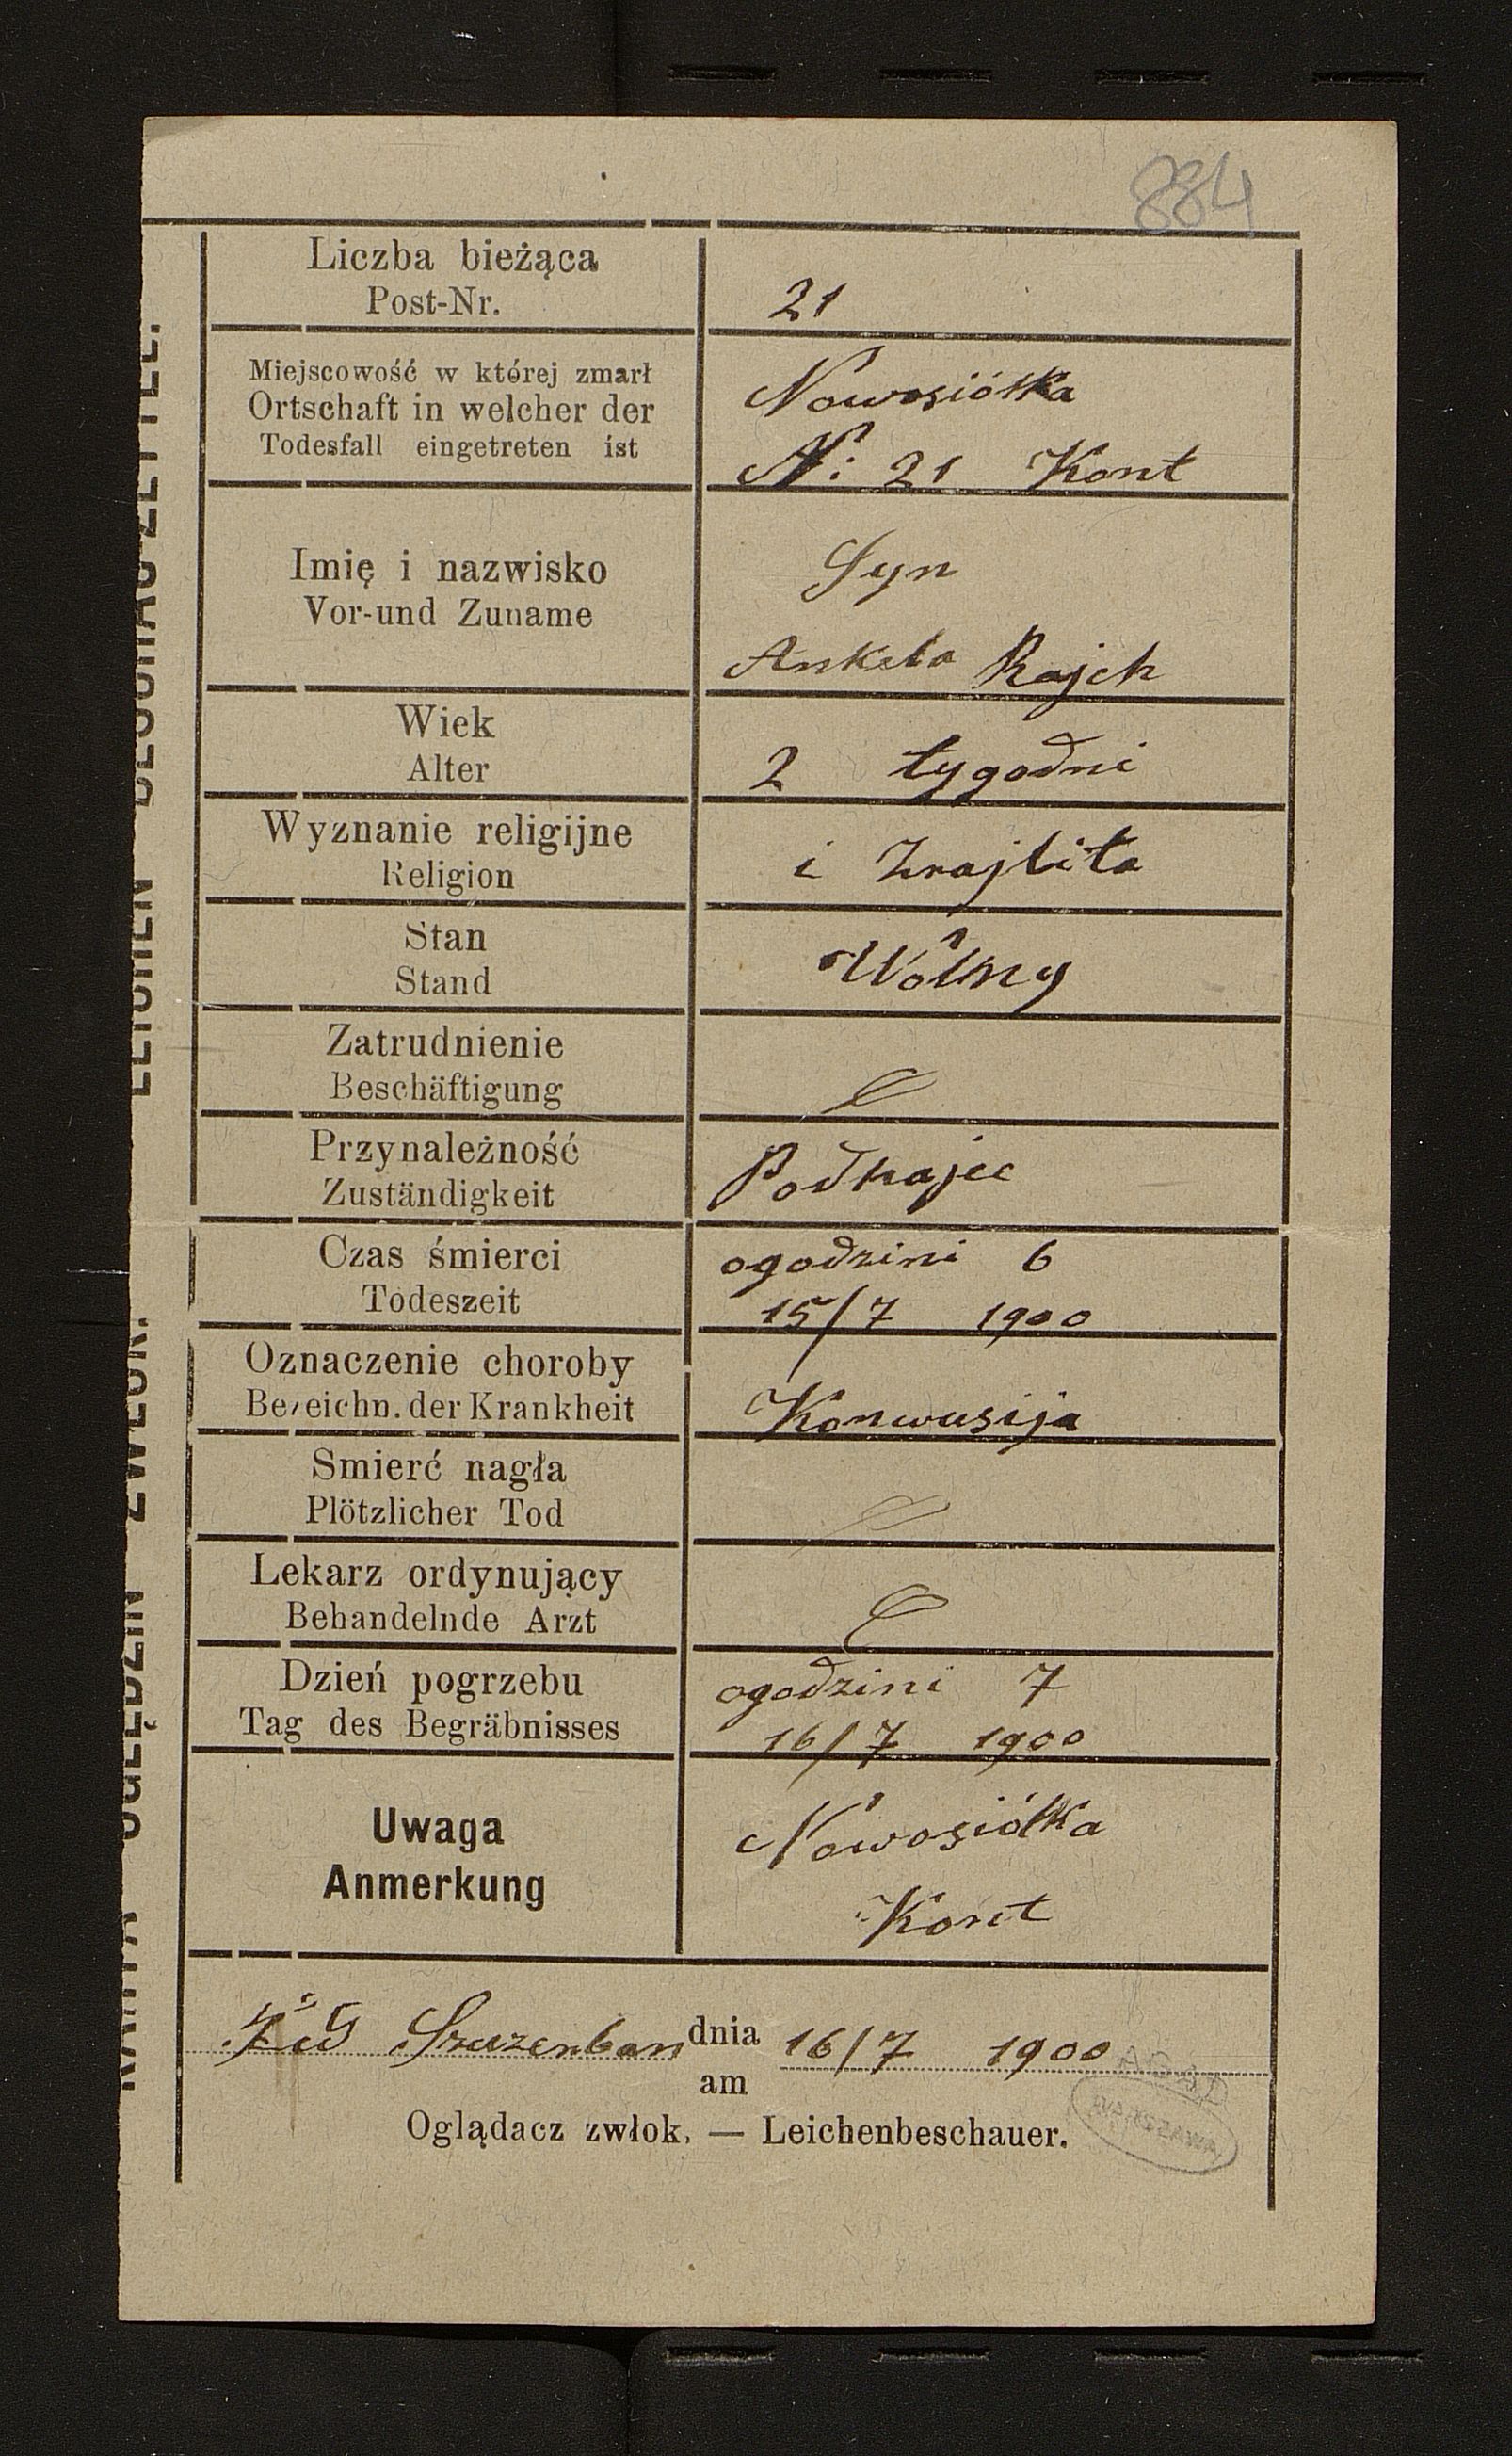 884
Liczba bieżąca
Post-Nr.
21
Miejscowość w której zmarł
Ortschaft in welcher der
Todesfall eingetreten ist
Nowosiółka
N: 21 Kont
Imię i nazwisko
Vor-und Zuname
Syn
Ankela Rajch
Wiek
Alter
2 tygodni
Wyznanie religijne
Religion
i Zrajlita
Stan
Stand
Wólny
Zatrudnienie
Beschäftigung
Przynależność
Zuständigkeit
Podhajec
Czas śmierci
Todeszeit
ogodzini 6
15/7 1900
Oznaczenie choroby
Bezeichn. der Krankheit
Konwusija
Smierć nagła
Plötzlicher Tod
Lekarz ordynujący
Behandelnde Arzt
Dzień pogrzebu
Tag des Begräbnisses
ogodzini 7
16/7 1900
Uwaga
Anmerkung
Nowosiólka
Kont
dnia 16/7 1900
am
Oglądacz zwłok. — Leichenbeschauer.
AGAD
WARSZAWA